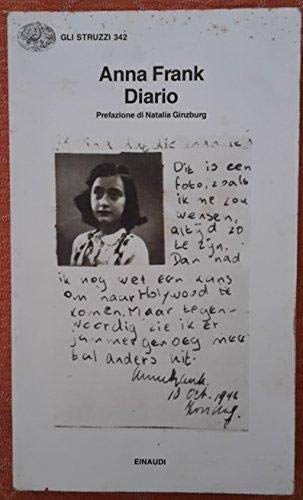 GLI STRUZZI 342
Anna Frank
Diario
Prefazione di Natalia Ginzburg
Dit is een
foto, zoals
ik me zou
wensen,
altijd zo
te zijn.
Dan had
ik nog wel een kans
om naar Holywood te
komen. Maar tegen-
woordig zie ik er
jammer genoeg mee-
tal anders uit.
Annefrank.
18 Oct. 1942
Zondag
EINAUDI